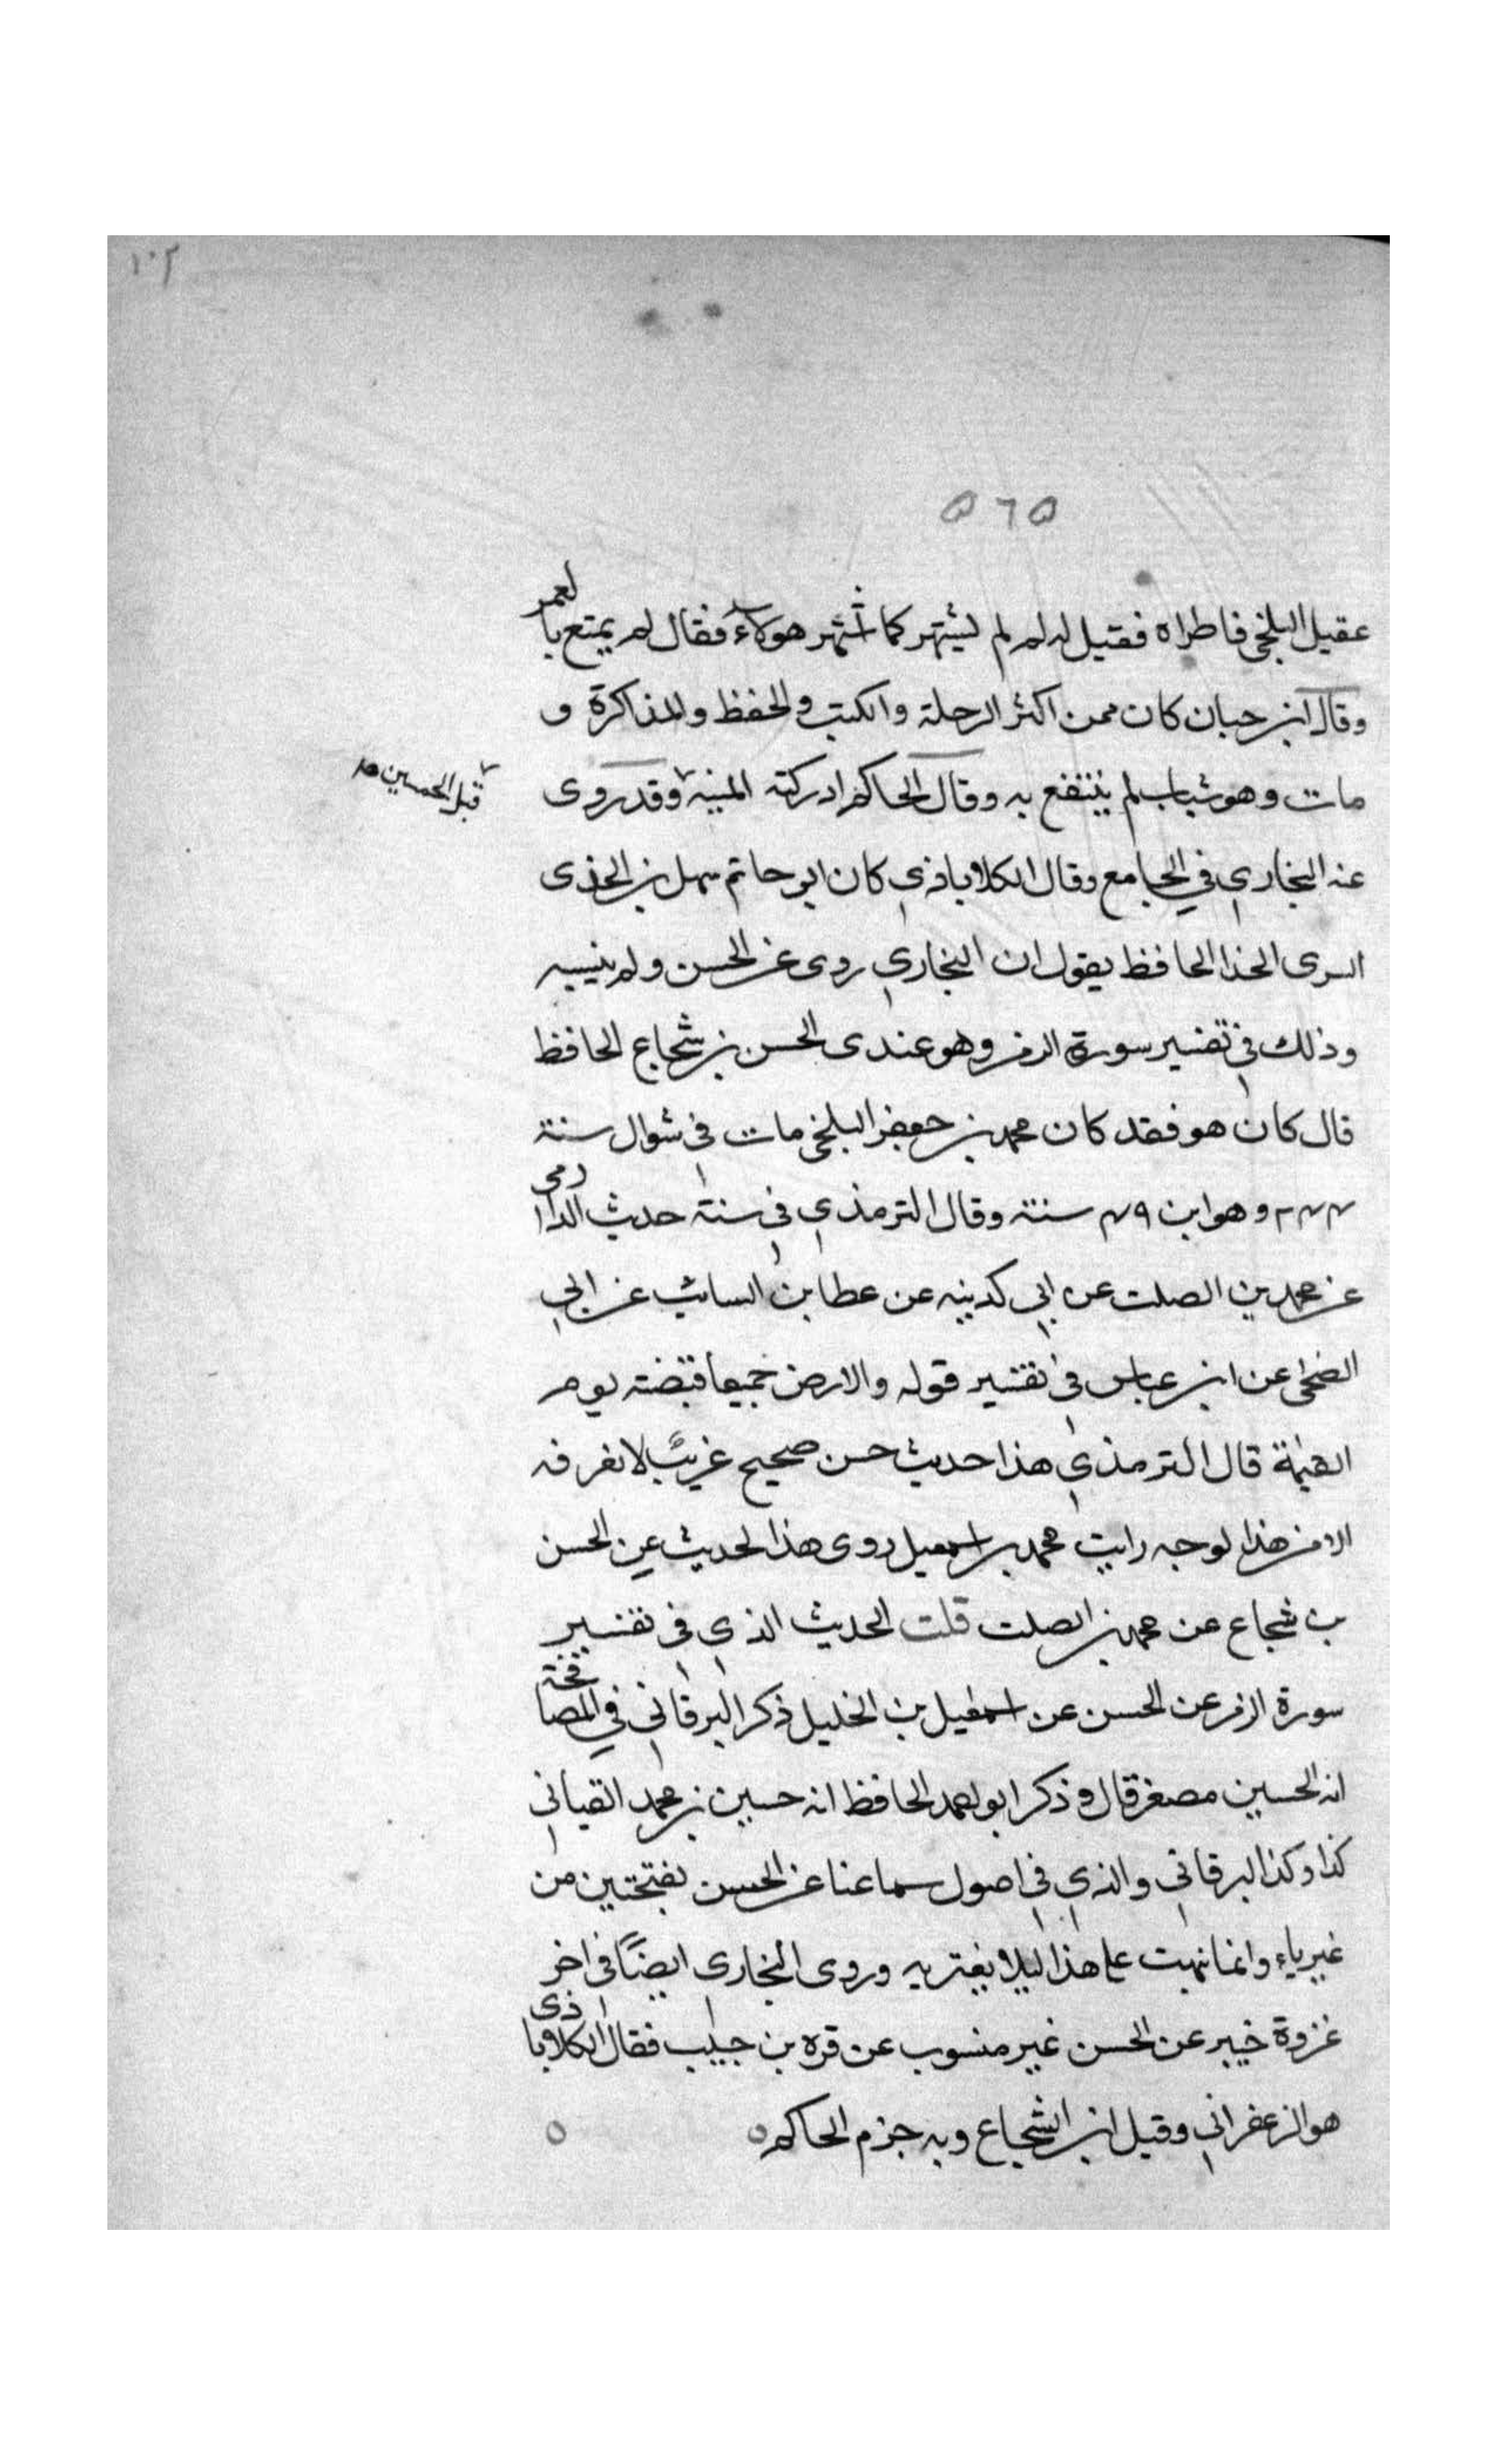 ١٠٢
٥٦٥
عقيل البلخي فاطراه فقيل له لم لم يشتهر كما أشتهر هولاء فقال لم يمتع بالعمر
وقال ابن حبان كان ممن اكثر الرحلة والكتب والحفظ والمذاكرة و
مات وهو شاب لم ينتفع به وقال الحاكم ادركته المنيه وقد روى
قبل الخمسين
عنه البخاري في الجامع وقال الكلاباذي كان ابو حاتم سهل بن الحذى
السرى الحذا الحافظ يقول ان البخاري روى عن الحسن ولم ينسبه
وذلك في تفسير سورة الزمر وهو عندى الحسن بن شجاع الحافظ
قال كان هو فقد كان محمد بن جعفر البلخي مات في شوال سنة
وهو ابن سنة وقال الترمذي في سنة حديث الدارمى
عن محمد بن الصلت عن ابي كدينه عن عطا بن السائب عن ابي
الضحى عن ابن عباس في تفسير قوله والارض جميعا قبضته يوم
القيمة قال الترمذي هذا حديث حسن صحيح غريب لا نعرفه
الا من هذا لوجه رايت محمد بن اسمعيل روى هذا لحديث عن الحسن
بن شجاع عن محمد بن الصلت قلت الحديث الذي في تفسير
سورة الزمر عن الحسن عن اسمعيل بن الخليل ذكر البرقاني في المصافحة
انه الحسين مصغر قال وذكر ابو احمد الحافظ انه حسين بن محمد القباني
كذا وكذا البرقاني والذي في اصول سماعنا عن الحسن بفتحتين من
غير ياء وانما نبهت على هذا ليلا يغتر به وروى البخارى ايضًا في اخر
غزوة خيبر عن الحسن غير منسوب عن قره بن حبيب فقال الكلاباذى
هو الزعفراني وقيل ابن الشجاع وبه جزم الحاكم